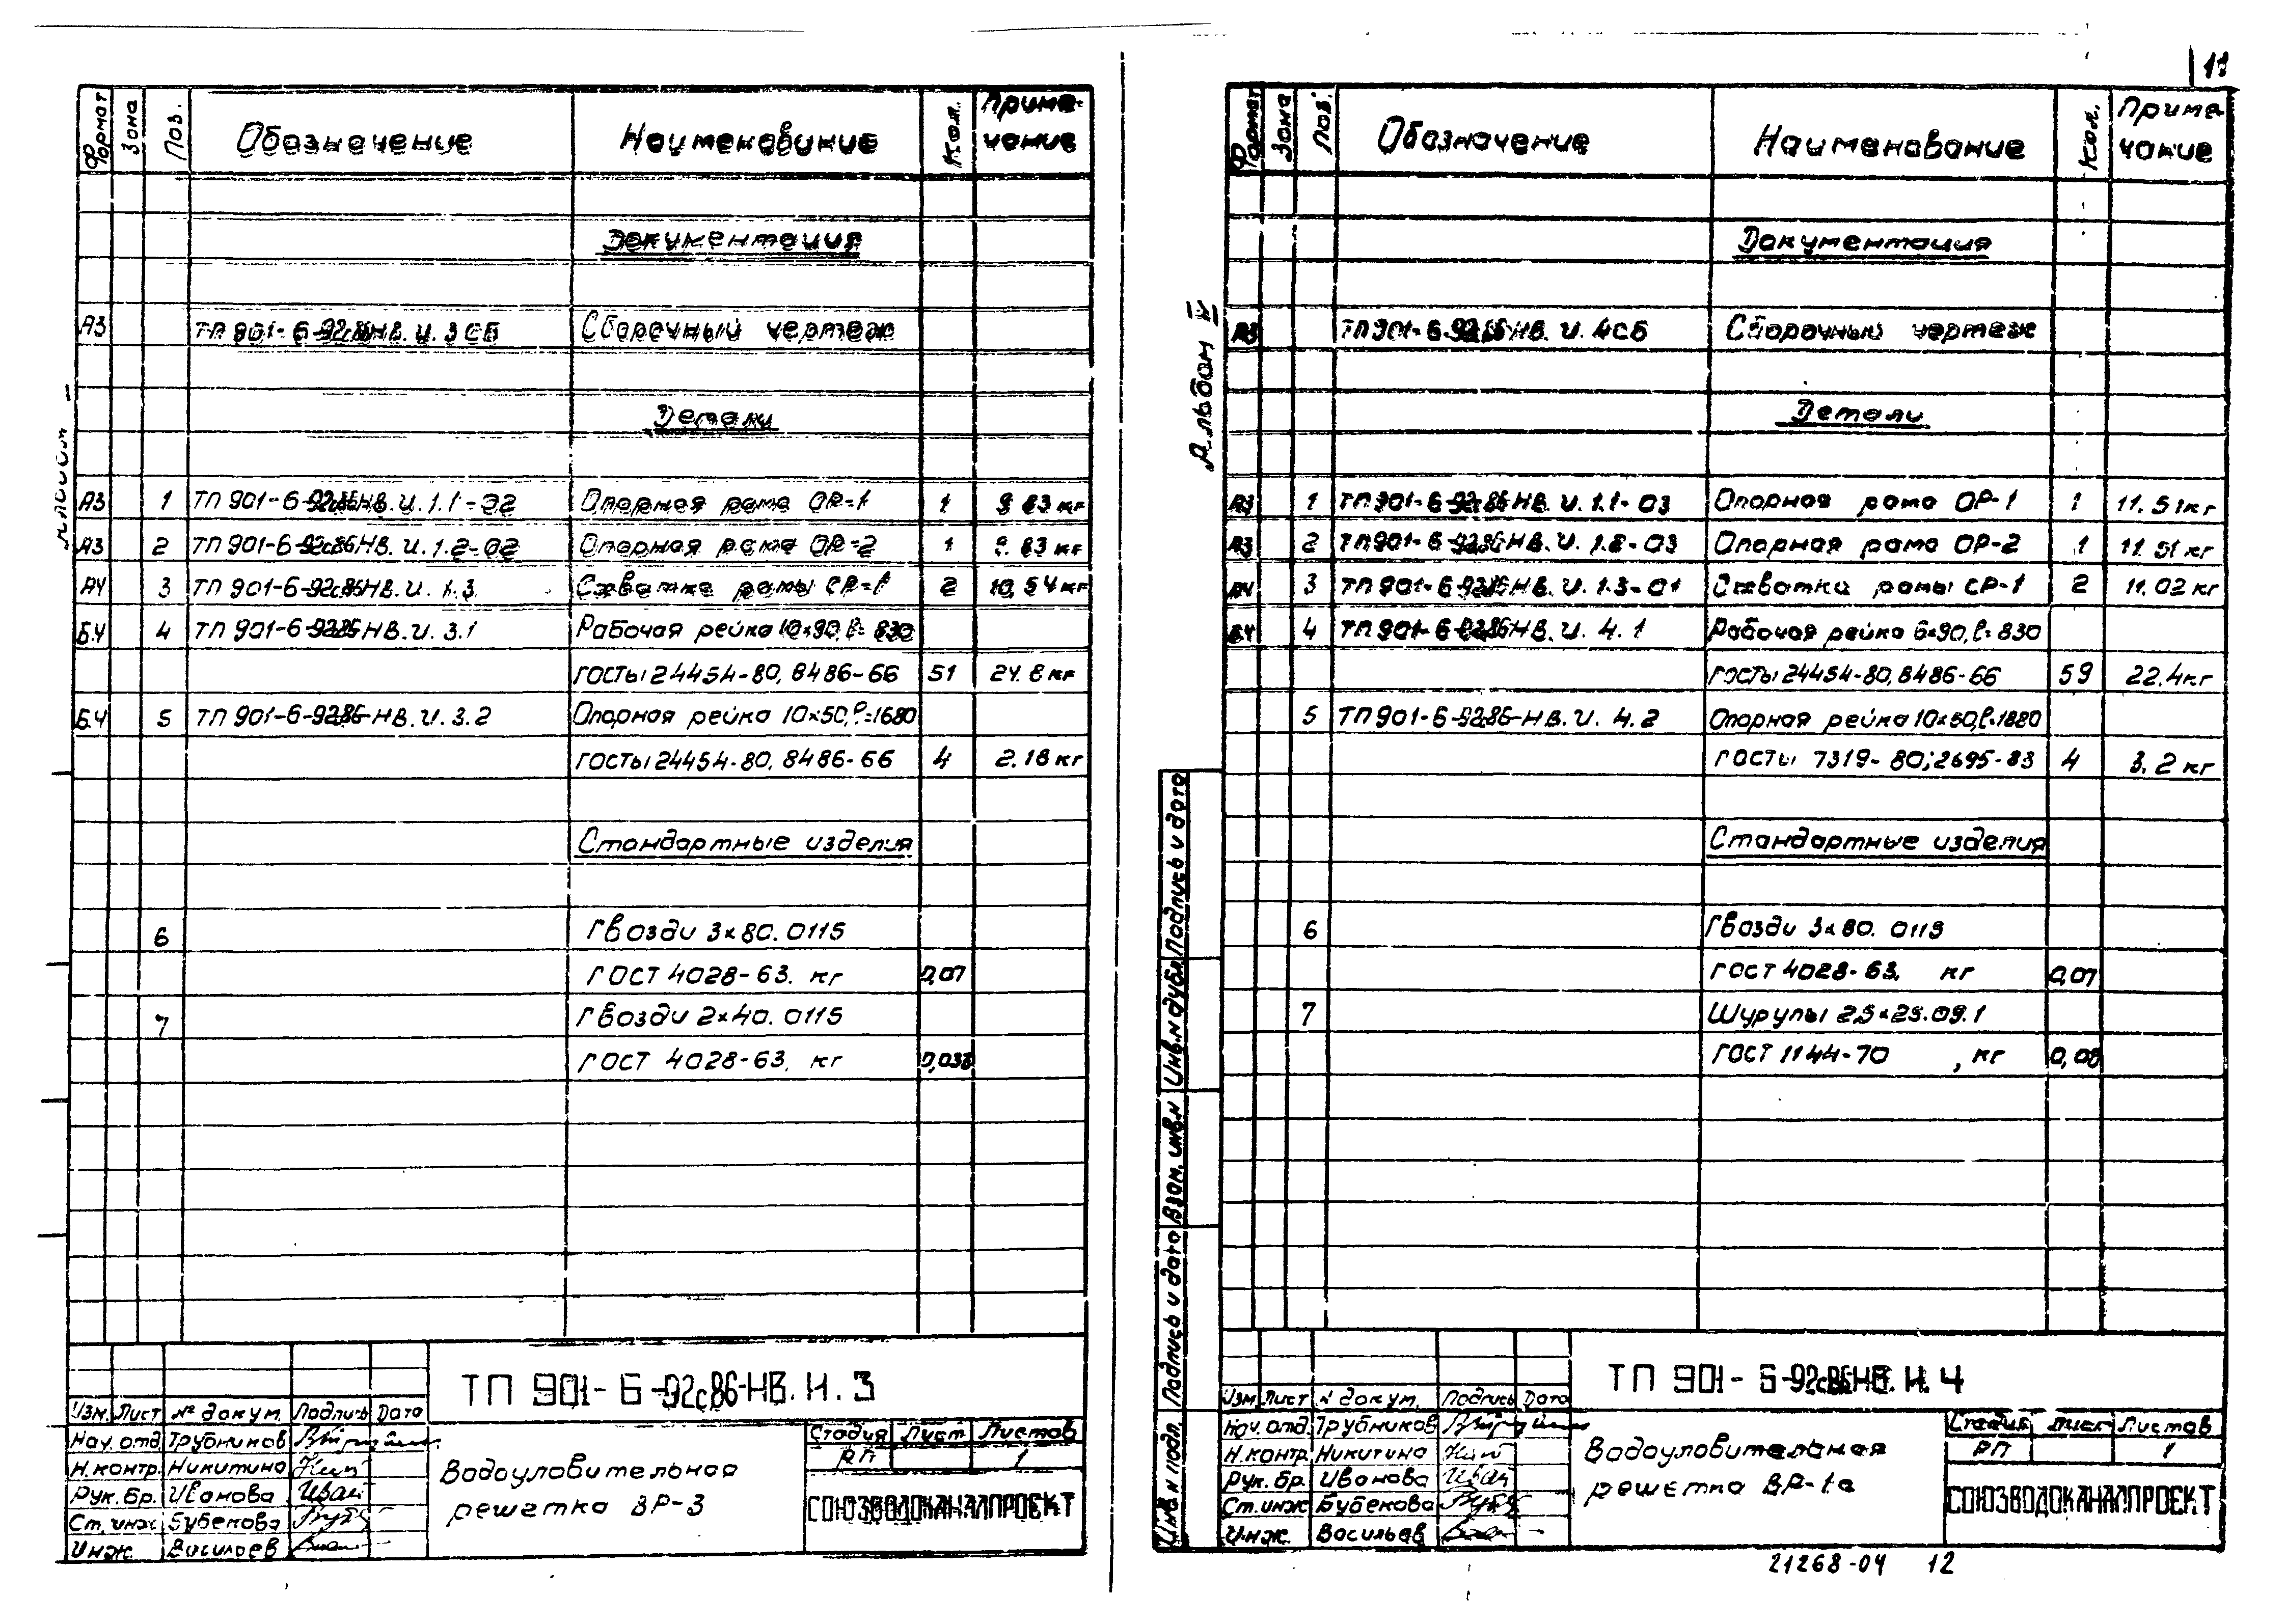 11
Формат Зона Поз. Обозначение Наименование Кол. Приме-
чание
Документация
А3 ТП 901-6-92с86 НВ.И.3СБ Сборочный чертеж
Детали
А3 1 ТП 901-6-92с86 НВ.И.1.1-02 Опорная рама ОР-1 1 9.83 кг
А3 2 ТП 901-6-92с86 НВ.И.1.2-02 Опорная рама ОР-2 1 9.83 кг
А4 3 ТП 901-6-92с86 НВ.И.1.3 Схватка рамы СР-1 2 10,54 кг
Б.Ч 4 ТП 901-6-92с86 НВ.И.3.1 Рабочая рейка 10×90, ℓ=830
ГОСТы 24454-80, 8486-66 51 24.8 кг
Б.Ч 5 ТП 901-6-92с86-НВ.И.3.2 Опорная рейка 10×50, ℓ=1680
ГОСТы 24454-80, 8486-66 4 2.18 кг
Стандартные изделия
6 Гвозди 3×80.0115
ГОСТ 4028-63. кг 0,07
7 Гвозди 2×40.0115
ГОСТ 4028-63, кг 0,038
ТП 901-6-92с86-НВ.И.3
Изм. Лист № докум. Подпись Дата
Нач. отд Трубников
Н.контр. Никитина
Рук. бр. Иванова
Ст. инж Бубекова
Инж. Васильев
Водоуловительная
решетка ВР-3
Стадия Лист Листов
РП 1
СОЮЗВОДОКАНАЛПРОЕКТ
Альбом IV
Формат Зона Поз. Обозначение Наименование Кол. Приме
чание
Документация
А3 ТП 901-6-92с86 НВ.И.4СБ Сборочный чертеж
Детали
А3 1 ТП 901-6-92с86 НВ.И.1.1-03 Опорная рама ОР-1 1 11.51 кг
А3 2 ТП 901-6-92с86 НВ.И.1.2-03 Опорная рама ОР-2 1 11.51 кг
А4 3 ТП 901-6-92с86 НВ.И.1.3-01 Схватка рамы СР-1 2 11.02 кг
Б.Ч 4 ТП 901-6-92с86 НВ.И.4.1 Рабочая рейка 6×90, ℓ=830
ГОСТы 24454-80, 8486-66 59 22.4 кг
5 ТП 901-6-92с86-НВ.И.4.2 Опорная рейка 10×50, ℓ=1880
ГОСТы 7319-80; 2695-83 4 3.2 кг
Стандартные изделия
6 Гвозди 3×80.0115
ГОСТ 4028-63, кг 0,07
7 Шурупы 2,5×25.09.1
ГОСТ 1144-70, кг 0,08
Инв. № подл. Подпись и дата Взам. инв. № Инв. № дубл. Подпись и дата
ТП 901-6-92с86 НВ.И.4
Изм Лист № докум. Подпись Дата
Нач. отд. Трубников
Н.контр Никитина
Рук. бр. Иванова
Ст. инж Бубекова
Инж. Васильев
Водоуловительная
решетка ВР-1а
Стадия Лист Листов
РП 1
СОЮЗВОДОКАНАЛПРОЕКТ
21268-04 12